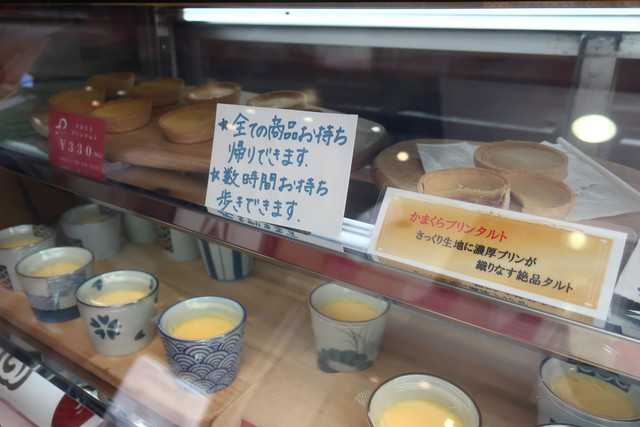 かまくら
プリンタルト
¥330
★全ての商品お持ち
帰りできます.
★数時間お持ち
歩きできます.
かまくらプリンタルト
さっくり生地に濃厚プリンが
織りなす絶品タルト